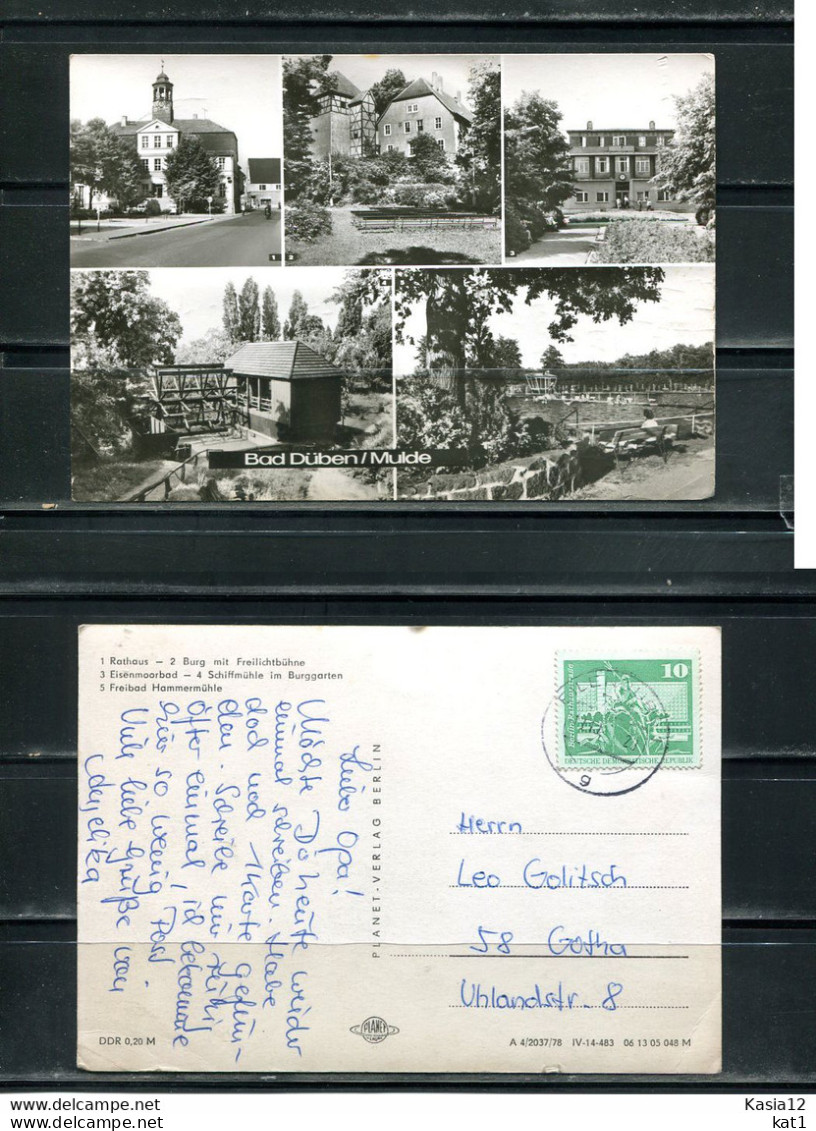 1
2
3
4
Bad Düben/Mulde
1 Rathaus – 2 Burg mit Freilichtbühne
3 Eisenmoorbad – 4 Schiffmühle im Burggarten
5 Freibad Hammermühle
Lieber Opa!
Möchte Dir heute wieder
einmal schreiben. Habe
doch noch 1 Karte gefun-
den. Schreibe mir
öfter einmal, ich bekomme
hier so wenig Post
Viele liebe Grüße von
Angelika
PLANET-VERLAG BERLIN
10
DEUTSCHE DEMOKRATISCHE REPUBLIK
g
Herrn
Leo Golitsch
58 Gotha
Uhlandstr. 8
DDR 0,20 M
PLANET
A 4/2037/78 IV-14-483 06 13 05 048 M
Kasia12
kat1